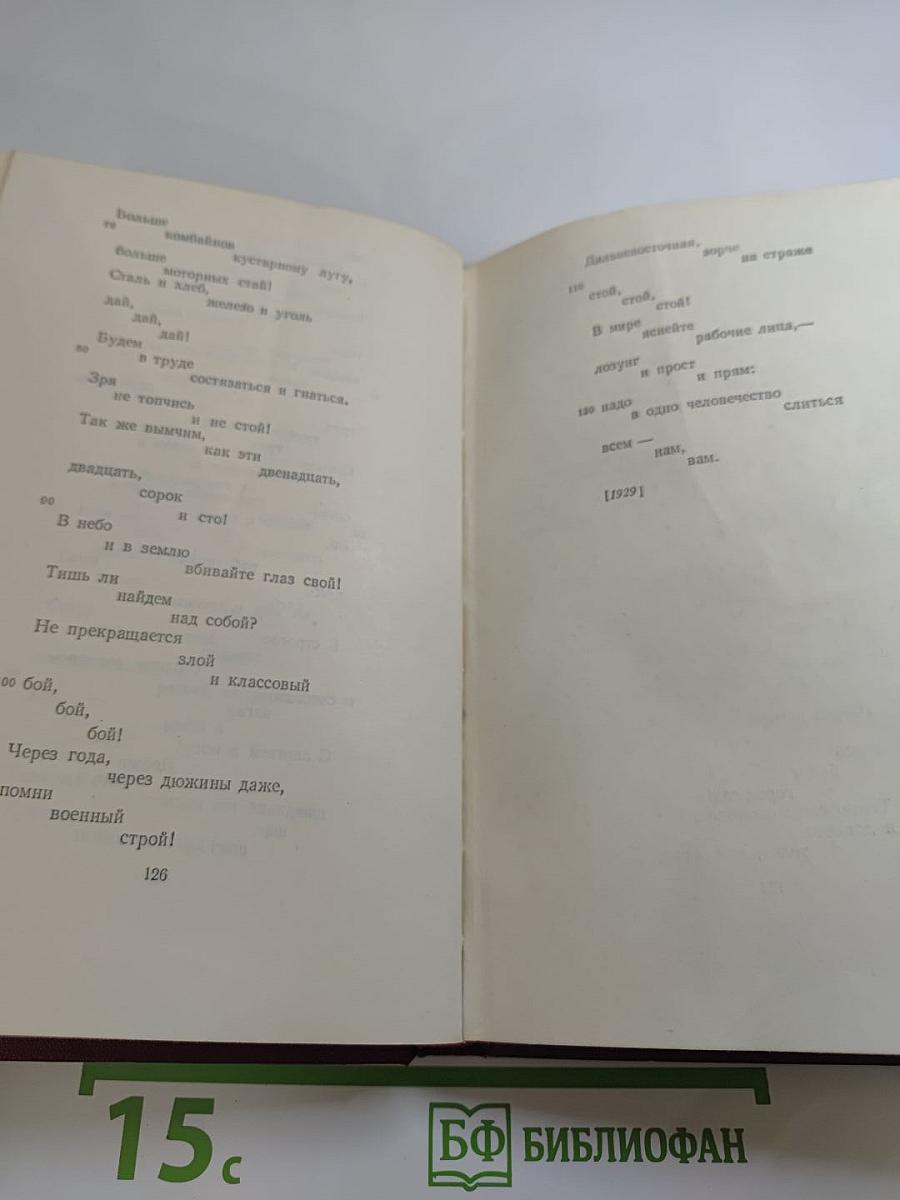 Больше
70 комбайнов
кустарному лугу,
больше
моторных стай!
Сталь и хлеб,
железо и уголь
дай,
дай,
дай!
Будем
80 в труде
состязаться и гнаться.
Зря
не топчись
и не стой!
Так же вымчим,
как эти
двенадцать,
двадцать,
сорок
90 и сто!
В небо
и в землю
вбивайте глаз свой!
Тишь ли
найдем
над собой?
Не прекращается
злой
и классовый
00 бой,
бой,
бой!
Через года,
через дюжины даже,
помни
военный
строй!
126
Дальневосточная,
зорче
на страже
110 стой,
стой,
стой!
В мире
яснейте
рабочие лица,—
лозунг
и прост
и прям:
120 надо
в одно человечество
слиться
всем —
нам,
вам.
[1929]
15 с
БФ БИБЛИОФАН